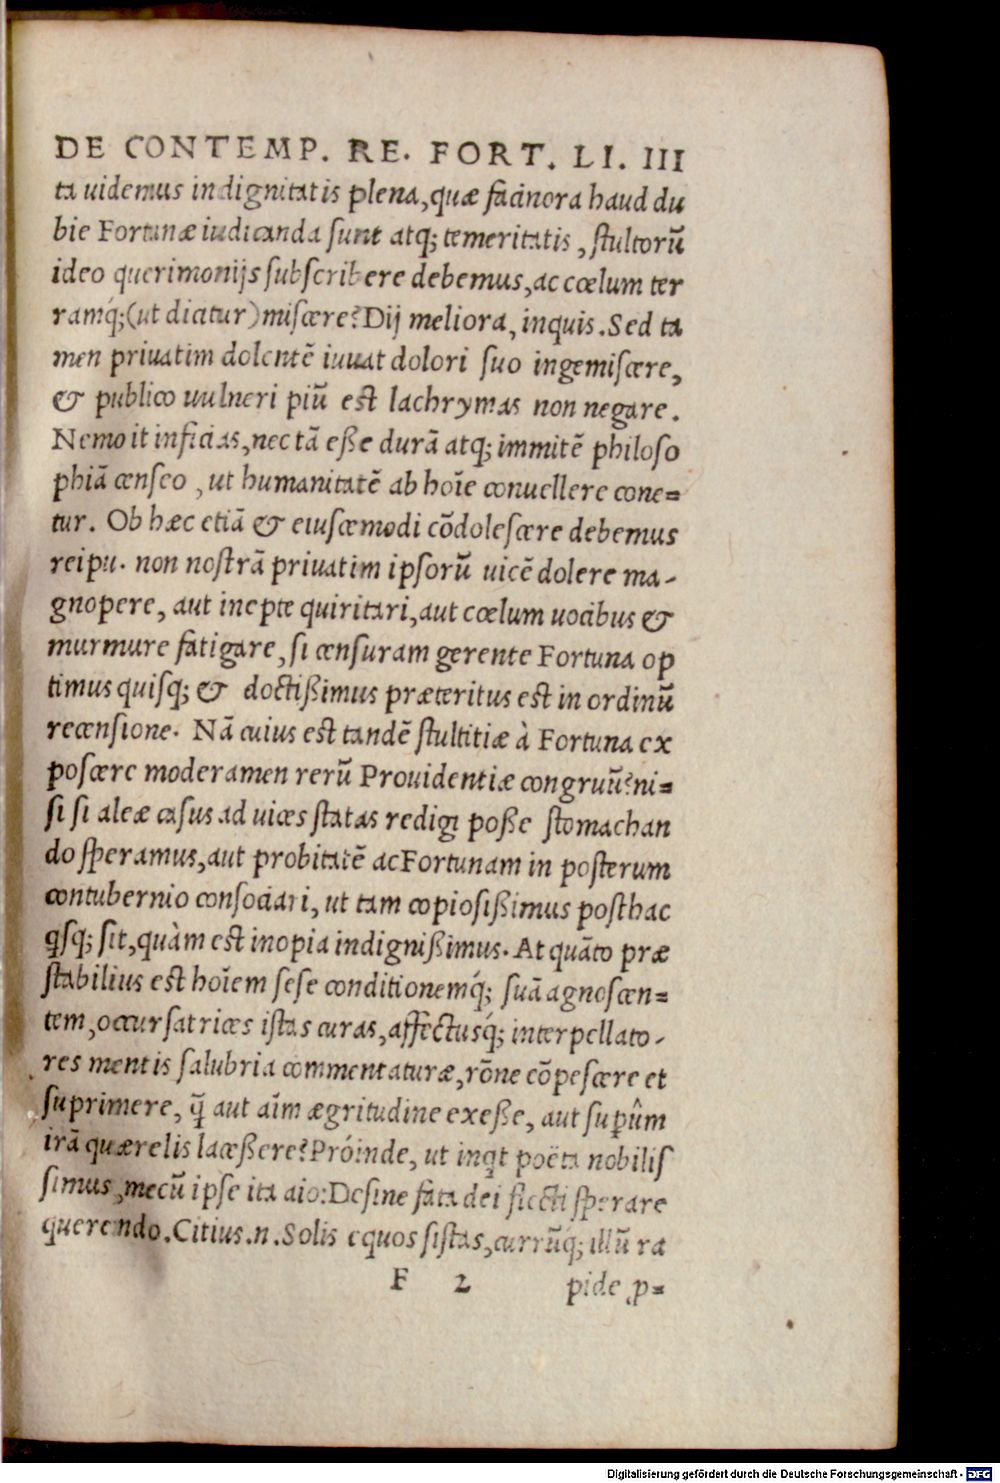 DE CONTEMP. RE. FORT. LI. III
ta uidemus indignitatis plena, quæ facinora haud du
bie Fortunæ iudicanda sunt atq; temeritatis, stultorũ
ideo querimonijs subscribere debemus, ac cœlum ter
ramq́;(ut dicitur)miscere? Dij meliora, inquis. Sed ta
men priuatim dolentẽ iuuat dolori suo ingemiscere,
& publico uulneri piũ est lachrymas non negare.
Nemo it inficias, nec tã eße durã atq; immitẽ philoso
phiã censeo, ut humanitatẽ ab hoĩe conuellere cone=
tur. Ob hæc etiã & eiuscemodi cõdolescere debemus
reipu. non nostrã priuatim ipsorũ uicẽ dolere ma-
gnopere, aut inepte quiritari, aut cœlum uocibus &
murmure fatigare, si censuram gerente Fortuna op
timus quisq; & doctißimus præteritus est in ordinũ
recensione. Nã cuius est tandẽ stultitiæ à Fortuna ex
poscere moderamen rerũ Prouidentiæ congruũ? ni=
si si aleæ casus ad uices statas redigi poße stomachan
do speramus, aut probitatẽ ac Fortunam in posterum
contubernio consociari, ut tam copiosißimus posthac
qsq; sit, quàm est inopia indignißimus. At quãto præ
stabilius est hoĩem sese conditionemq́; suã agnoscen=
tem, occursatrices istas curas, affectusq́; interpellato-
res mentis salubria commentaturæ, rõne cõpescere et
suprimere, q̃ aut aĩm ægritudine exeße, aut supûm
irã quærelis laceßere? Próinde, ut inqt poëta nobilis
simus, mecũ ipse ita aio: Desine fata dei flecti sperare
querendo. Citius .n. Solis equos sistas, currũq; illũ ra
F 2 pide p=
Digitalisierung gefördert durch die Deutsche Forschungsgemeinschaft - DFG